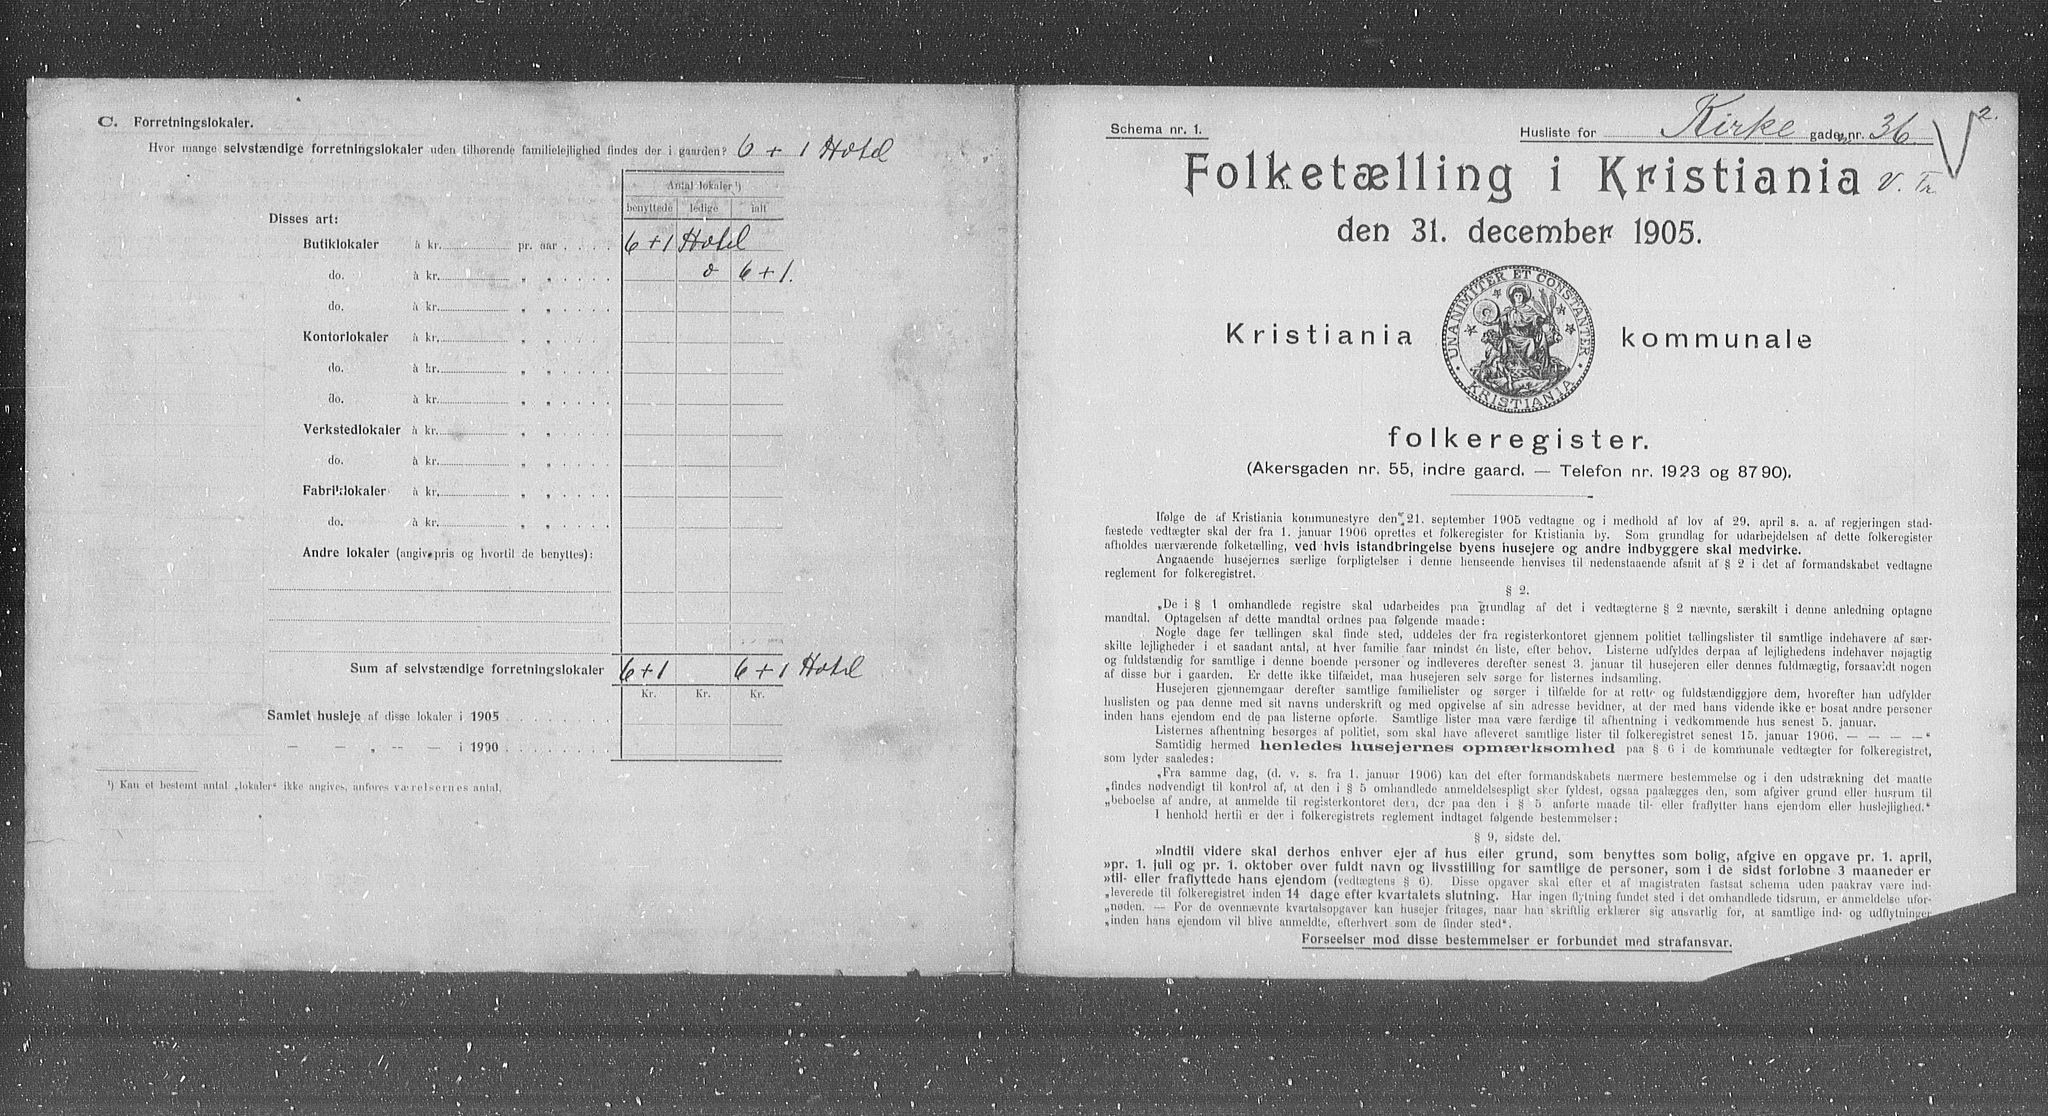 C. Forretningslokaler.
Hvor mange selvstændige forretningslokaler uden tilhørende familielejlighed findes der i gaarden? 6 + 1 Hotel
Antal lokaler ¹)
benyttede ledige ialt
Disses art:
Butiklokaler à kr. pr. aar 6+1 Hotel
do. à kr. „ „ o 6+1.
do. à kr. „ „
Kontorlokaler à kr. „ „
do. à kr. „ „
do. à kr. „ „
Verkstedlokaler à kr. „ „
do. à kr. „ „
Fabriklokaler à kr. „ „
do. à kr. „ „
Andre lokaler (angiv pris og hvortil de benyttes):
Sum af selvstændige forretningslokaler 6+1 6+1 Hotel
Kr. Kr. Kr.
Samlet husleje af disse lokaler i 1905
— — „ — — i 1900
¹) Kan et bestemt antal „lokaler“ ikke angives, anføres værelsernes antal.
2.
Schema nr. 1.
Husliste for Kirke gaden nr. 36.
Folketælling i Kristiania V. Tr.
den 31. december 1905.
Kristiania kommunale
UNANIMITER ET CONSTANTER
KRISTIANIA
folkeregister.
(Akersgaden nr. 55, indre gaard. — Telefon nr. 1923 og 8790).
Ifølge de af Kristiania kommunestyre den 21. september 1905 vedtagne og i medhold af lov af 29. april s. a. af regjeringen stad-
fæstede vedtægter skal der fra 1. januar 1906 oprettes et folkeregister for Kristiania by. Som grundlag for udarbejdelsen af dette folkeregister
afholdes nærværende folketælling, ved hvis istandbringelse byens husejere og andre indbyggere skal medvirke.
Angaaende husejernes særlige forpligtelser i denne henseende henvises til nedenstaaende afsnit af § 2 i det af formandskabet vedtagne
reglement for folkeregistret.
§ 2.
„De i § 1 omhandlede registre skal udarbeides paa grundlag af det i vedtægterne § 2 nævnte, særskilt i denne anledning optagne
mandtal. Optagelsen af dette mandtal ordnes paa følgende maade:
Nogle dage før tællingen skal finde sted, uddeles der fra registerkontoret gjennem politiet tællingslister til samtlige indehavere af sær-
skilte lejligheder i et saadant antal, at hver familie faar mindst én liste, efter behov. Listerne udfyldes derpaa af lejlighedens indehaver nøjagtig
og fuldstændig for samtlige i denne boende personer og indleveres derefter senest 3. januar til husejeren eller dennes fuldmægtig, forsaavidt nogen
af disse bor i gaarden. Er dette ikke tilfældet, maa husejeren selv sørge for listernes indsamling.
Husejeren gjennemgaar derefter samtlige familielister og sørger i tilfælde for at rette og fuldstændiggjøre dem, hvorefter han udfylder
huslisten og paa denne med sit navns underskrift og med opgivelse af sin adresse bevidner, at der med hans vidende ikke er bosat andre personer
inden hans ejendom end de paa listerne opførte. Samtlige lister maa være færdige til afhentning i vedkommende hus senest 5. januar.
Listernes afhentning besørges af politiet, som skal have afleveret samtlige lister til folkeregistret senest 15. januar 1906. — — — —“
Samtidig hermed henledes husejernes opmærksomhed paa § 6 i de kommunale vedtægter for folkeregistret,
som lyder saaledes:
„Fra samme dag, (d. v. s. fra 1. januar 1906) kan det efter formandskabets nærmere bestemmelse og i den udstrækning det maatte
„findes nødvendigt til kontrol af, at den i § 5 omhandlede anmeldelsespligt sker fyldest, ogsaa paalægges den, som afgiver grund eller husrum til
„beboelse af andre, at anmelde til registerkontoret dem, der paa den i § 5 anførte maade til- eller fraflytter hans ejendom eller huslejlighed.“
I henhold hertil er der i folkeregistrets reglement indtaget følgende bestemmelser:
§ 9, sidste del.
»Indtil videre skal derhos enhver ejer af hus eller grund, som benyttes som bolig, afgive en opgave pr. 1. april,
»pr. 1. juli og pr. 1. oktober over fuldt navn og livsstilling for samtlige de personer, som i de sidst forløbne 3 maaneder er
»til- eller fraflyttede hans ejendom (vedtægtens § 6). Disse opgaver skal efter et af magistraten fastsat schema uden paakrav være ind-
„leverede til folkeregistret inden 14 dage efter kvartalets slutning. Har ingen flytning fundet sted i det omhandlede tidsrum, er anmeldelse ufor-
„nøden. — For de ovennævnte kvartalsopgaver kan husejer fritages, naar han skriftlig erklærer sig ansvarlig for, at samtlige ind- og udflytninger
„inden hans ejendom vil blive anmeldte, efterhvert som de finder sted“.
Forseelser mod disse bestemmelser er forbundet med strafansvar.